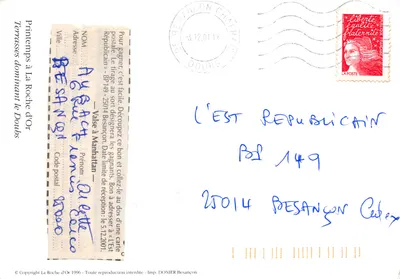 Printemps à La Roche d'Or
Terrasses dominant le Doubs
Pour gagner, c'est facile. Découpez ce bon et collez-le au dos d'une carte
postale. Le tirage au sort désignera les gagnants. Bon à adresser à « L'Est
Républicain » - BP 149 - 25014 Besançon. Date limite de réception : le 5.12.2001.
— Valse à Manhattan —
NOM AUBACH Prénom
Adresse
Ville BESANÇON Code postal 25000
© Copyright La Roche d'Or 1996 - Toute reproduction interdite - Imp. DONIER Besançon
liberté
égalité
fraternité
LA POSTE
L'EST REPUBLICAIN
BP 149
25014 BESANÇON Cedex